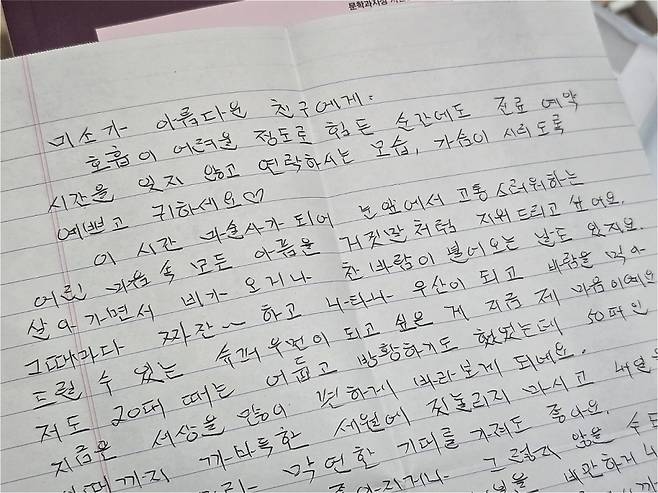 문학과지성
미소가 아름다운 친구에게:
호흡이 어려울 정도로 힘든 순간에도 진료 예약
시간을 잊지 않고 연락하시는 모습, 가슴이 시리도록
예쁘고 귀하세요♡
이 시간 마술사가 되어 눈앞에서 고통스러워하는
어린 마음 속 모든 아픔을 거짓말처럼 지워드리고 싶어요.
살아가면서 비가 오거나 찬바람이 불어오는 날도 있지요.
그때마다 짜잔~ 하고 나타나 우산이 되고 바람을 막아
드릴 수 있는 슈퍼우먼이 되고 싶은 게 지금 제 마음이예요
저도 20대 때는 어둡고 방황하기도 했었는데 50대인
지금은 세상을 많이 편하게 바라보게 되네요.
까마득한 세월에 짓눌리지 마시고 내일을
막연한 기대를 가져도 좋아요.
그렇지 않을 수도